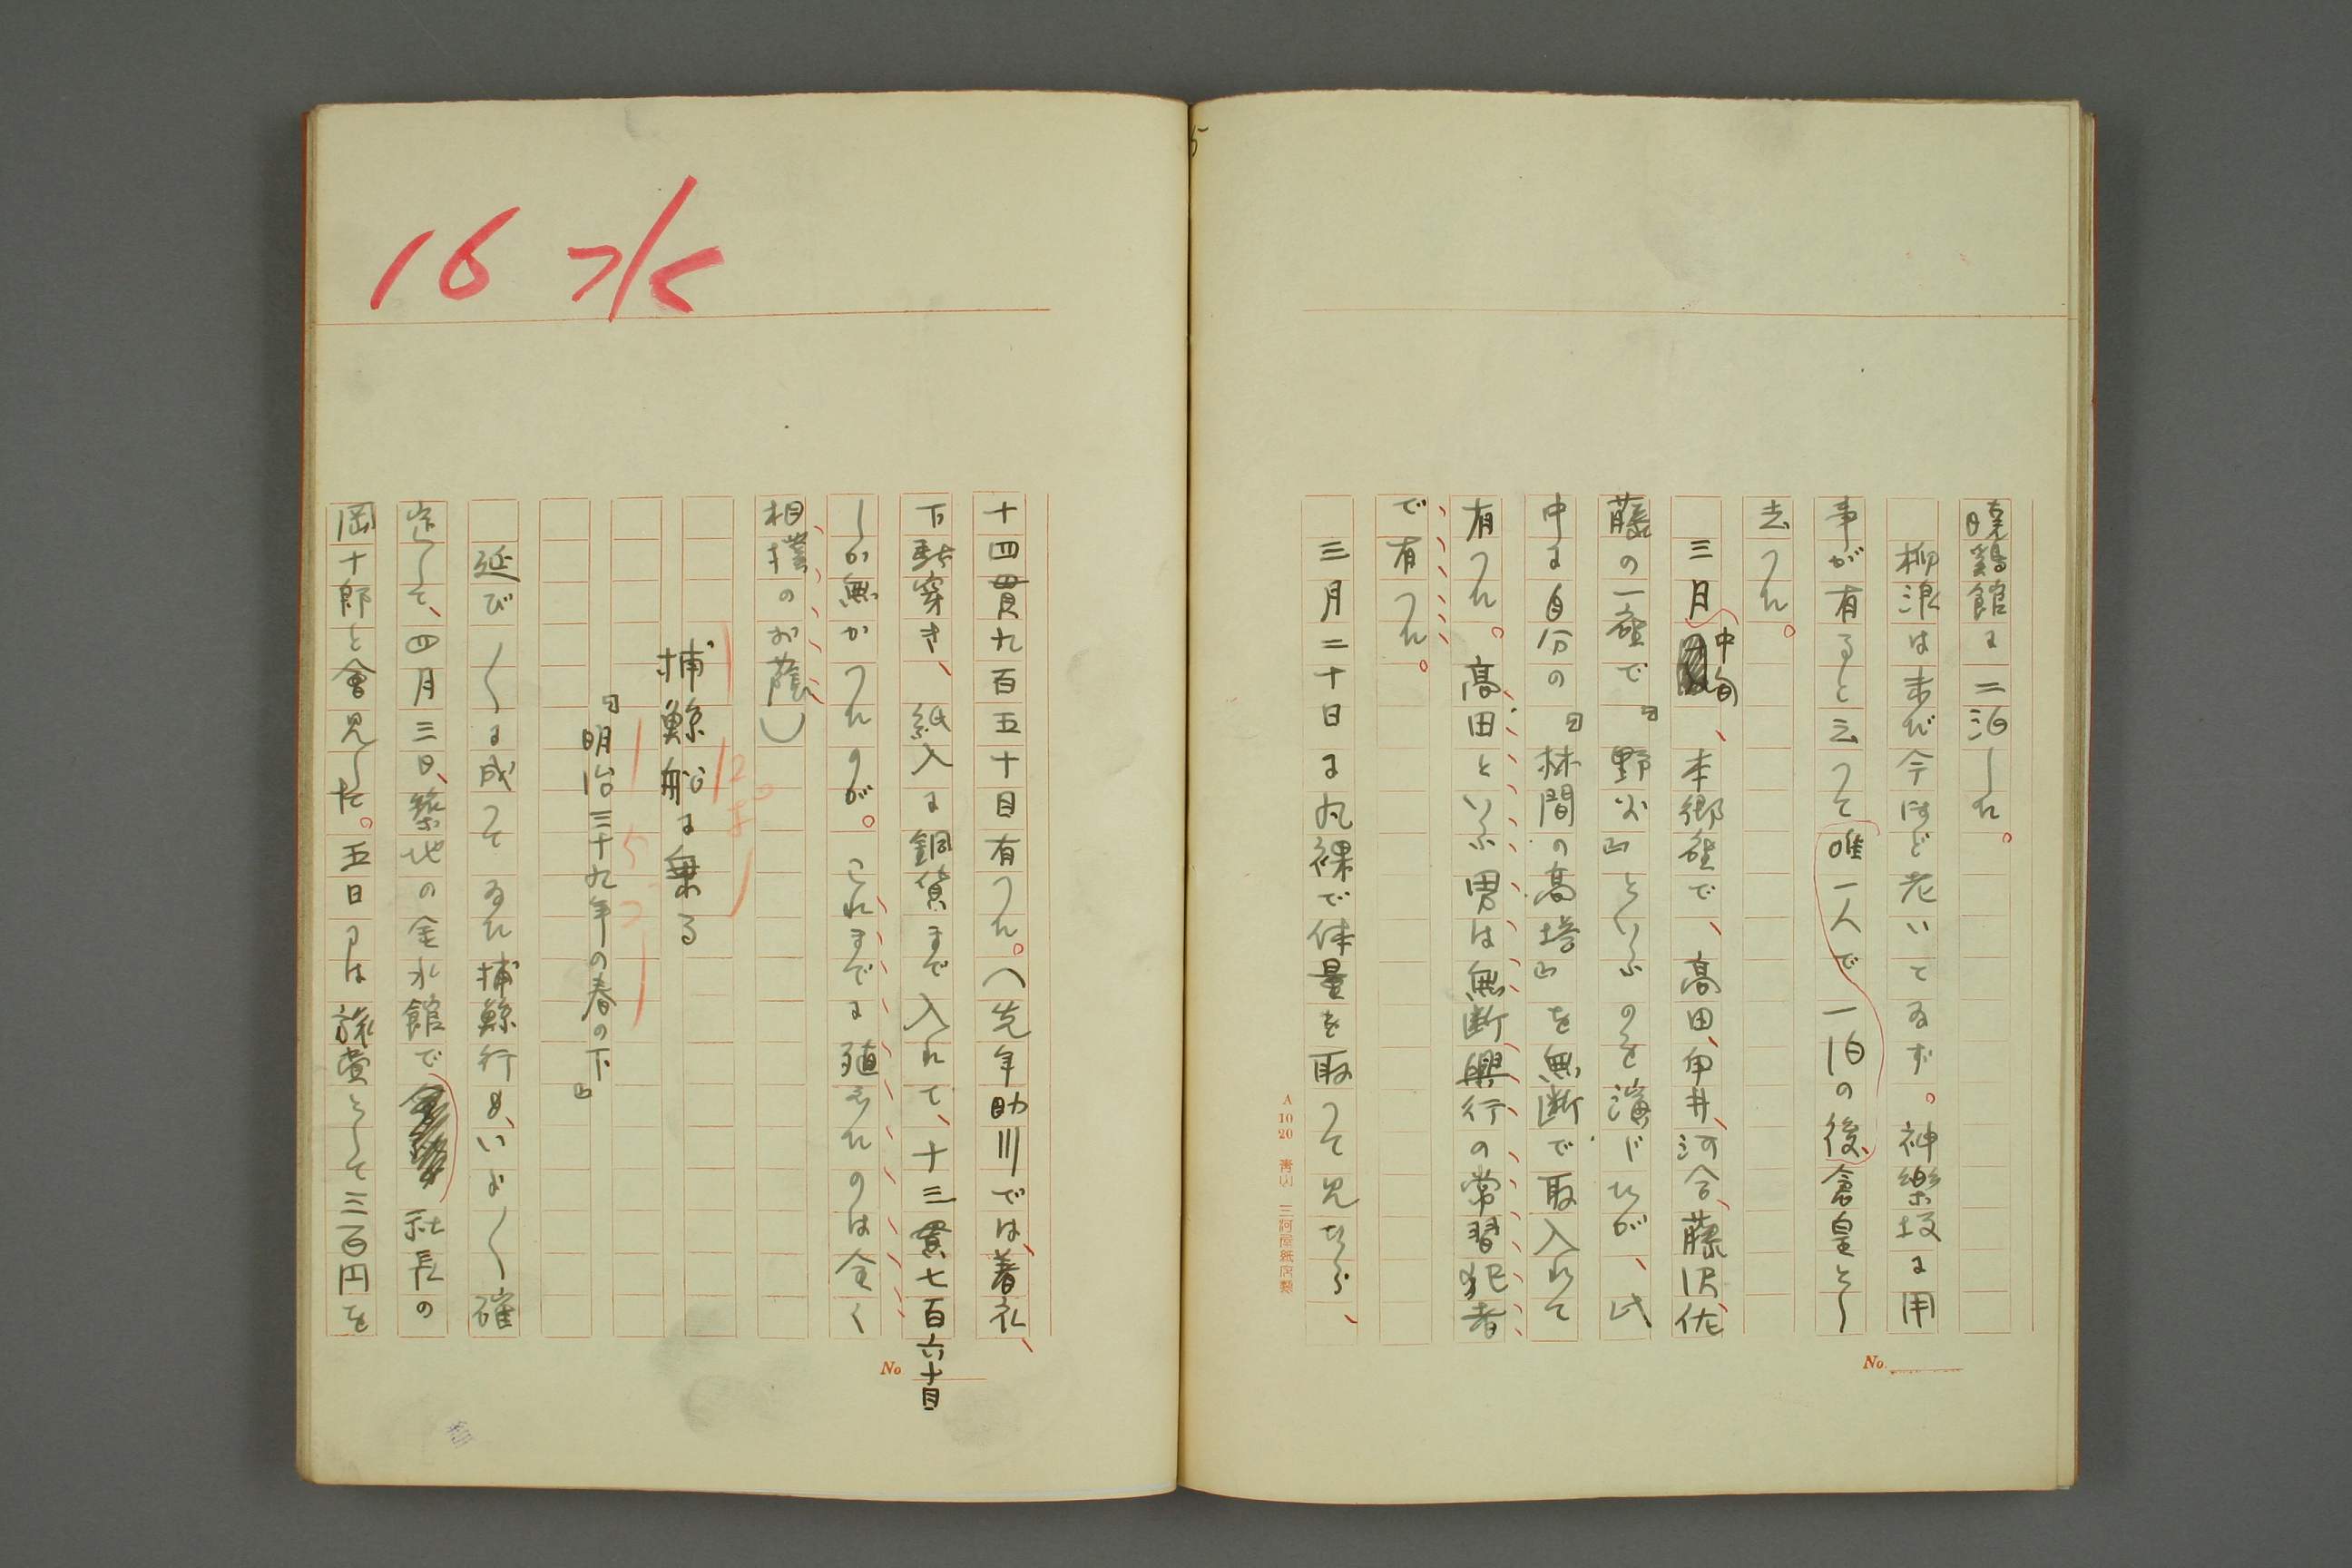 暁鶏館に二泊した。
柳浪は未だ今ほど老いてゐず。神樂坂に用
事が有ると云つて唯一人で一泊の後、倉皇とし
去つた。
三月中旬、本郷座で、高田、伊井、河合、藤沢、佐
藤の一座で『野火』といふのを演じたが、此
中に自分の『林間の高塔』を無断で取入れて
有つた。高田といふ男は無断興行の常習犯者
で有つた。
三月二十日に丸裸で体量を取つて見たら、
A 10 20
No.
5
十四貫九百五十目有つた。(先年助川では、着衣、
下駄穿き、紙入に銅貨まで入れて、十三貫七百六十目
しか無かつたのが。これまでに殖えたのは全く
相撲のお蔭)
捕鯨船に乗る
『明治三十九年の春の下』
延び〱に成つてゐた捕鯨行も、いよ〱確
定して、四月三日、築地の金水館で社長の
岡十郎と會見した。五日には旅費として三百円を
No
16 水
12
5